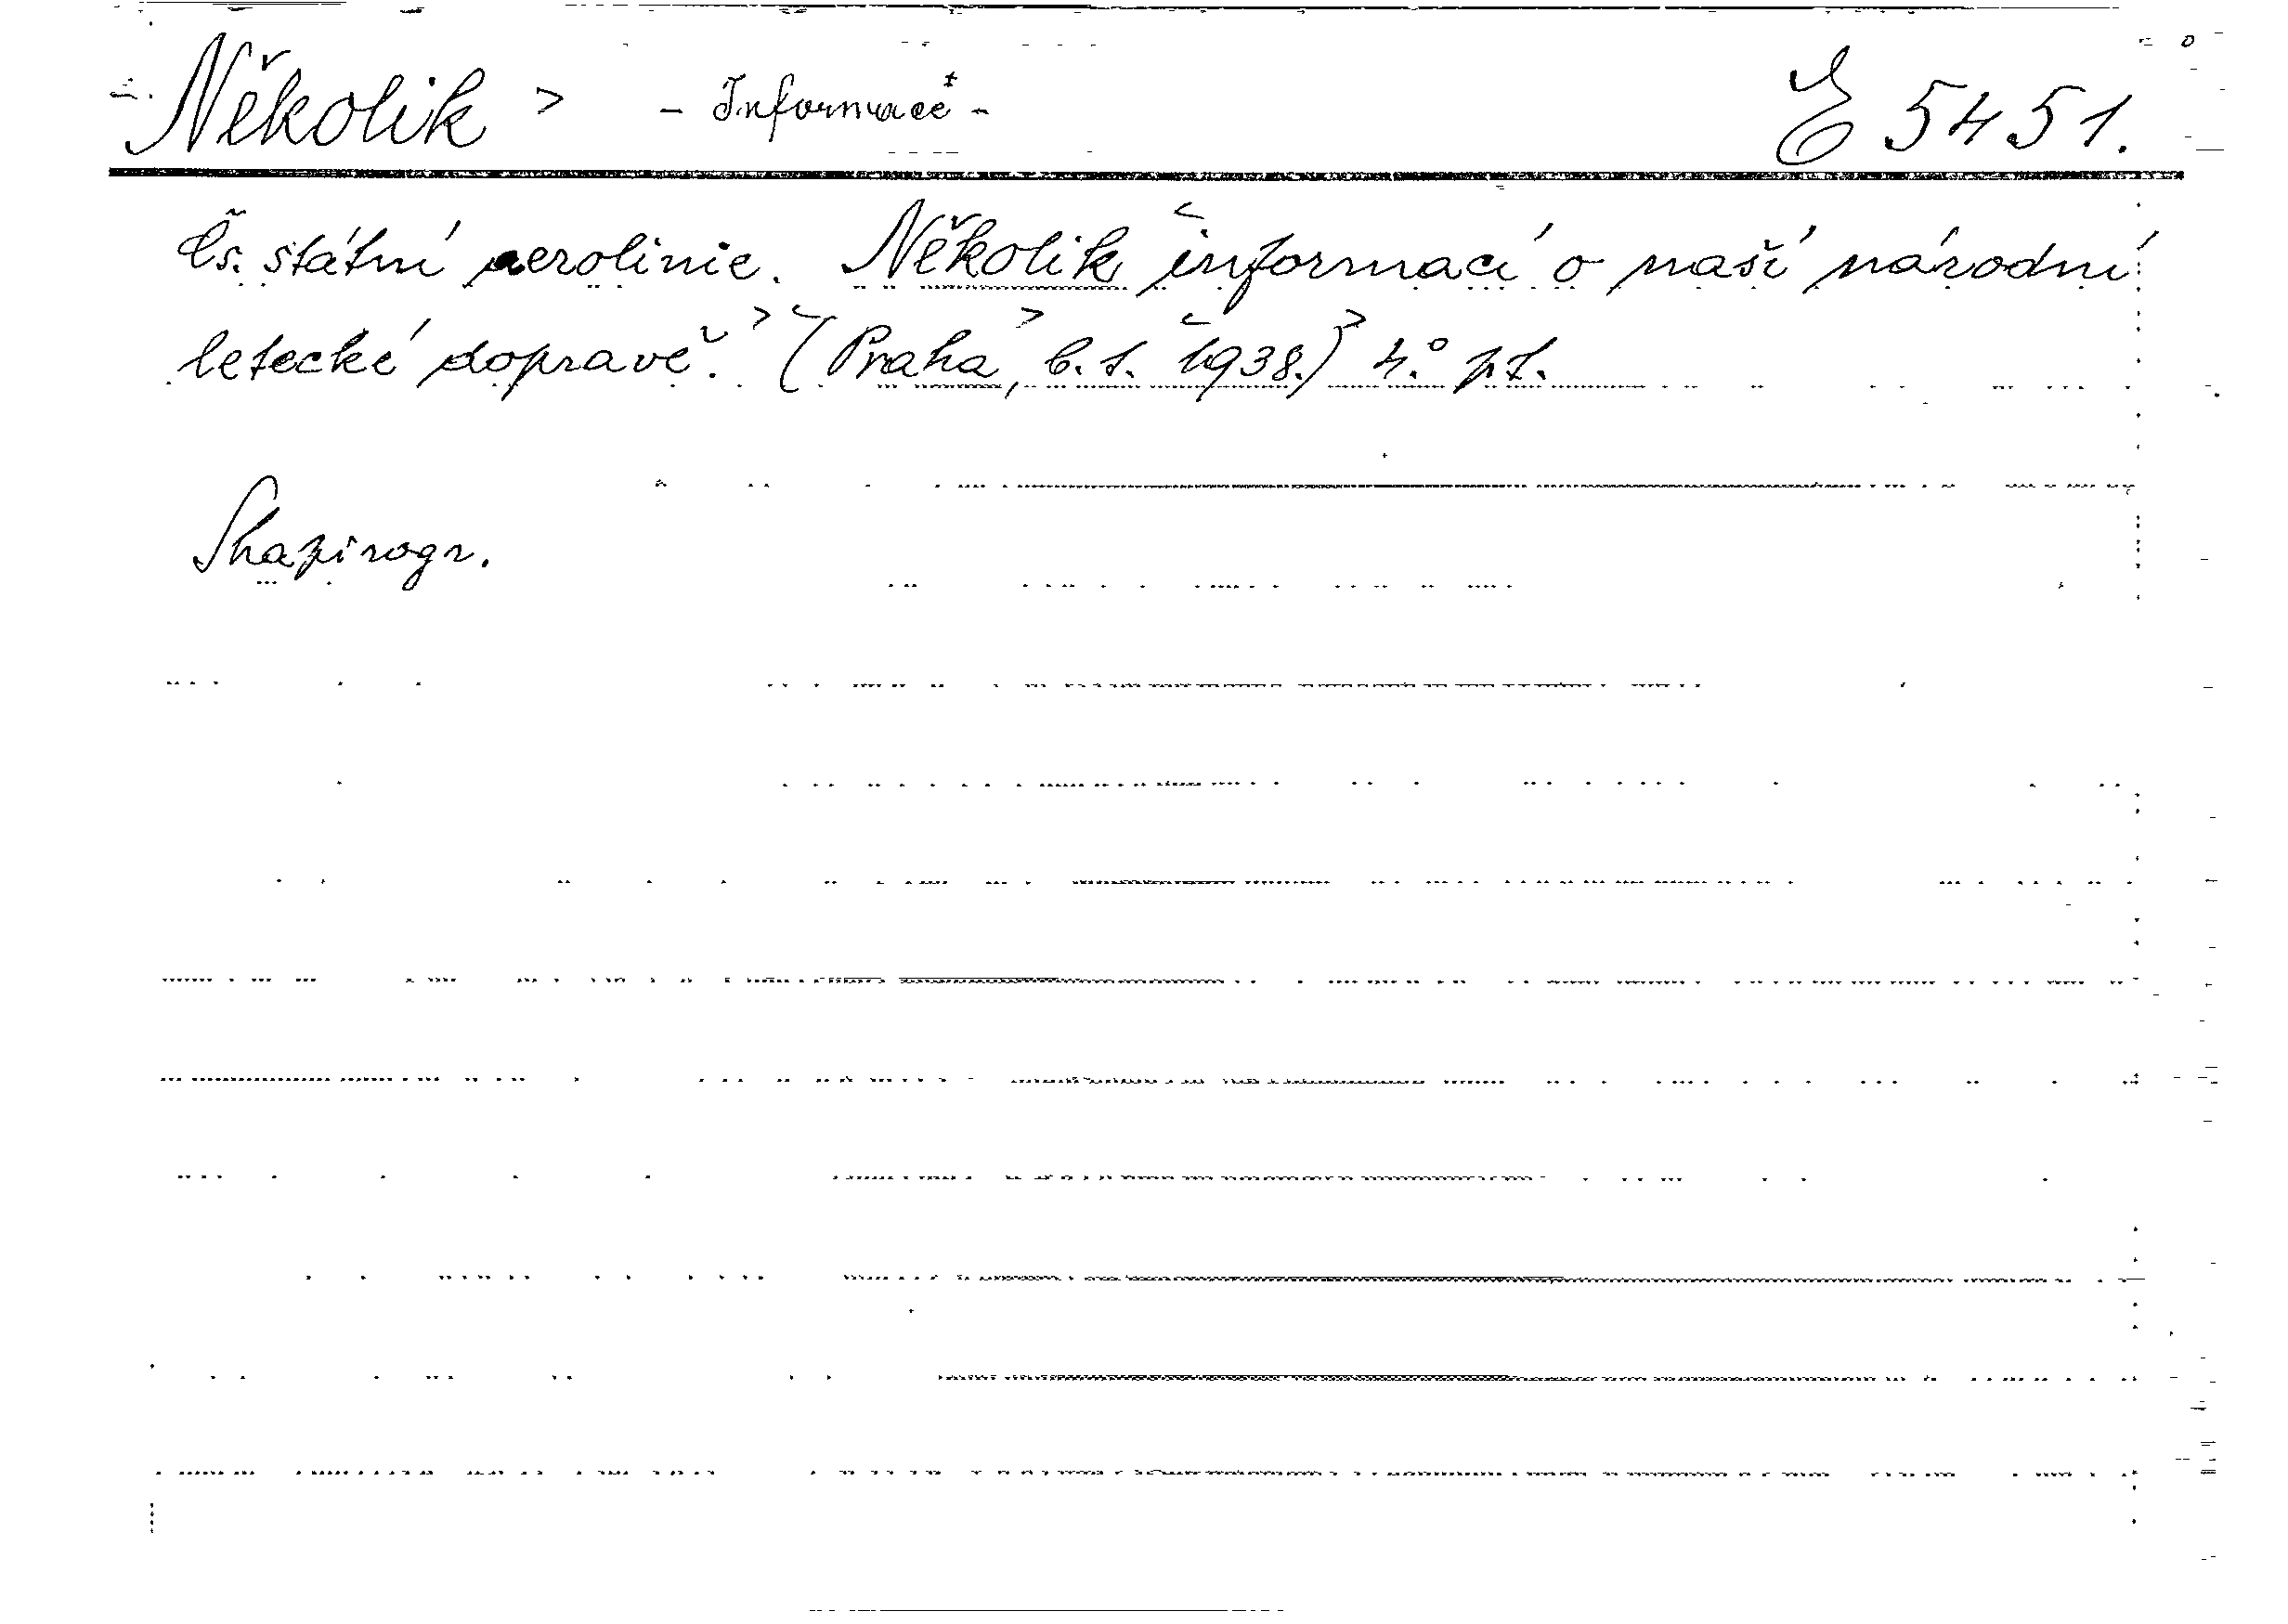 Několik > - Informace - E 5451.
Čs. státní aerolinie. Několik informací o naší národní
letecké dopravě. (Praha, b. t. 1938.) 4.° pf.
Shapirogr.